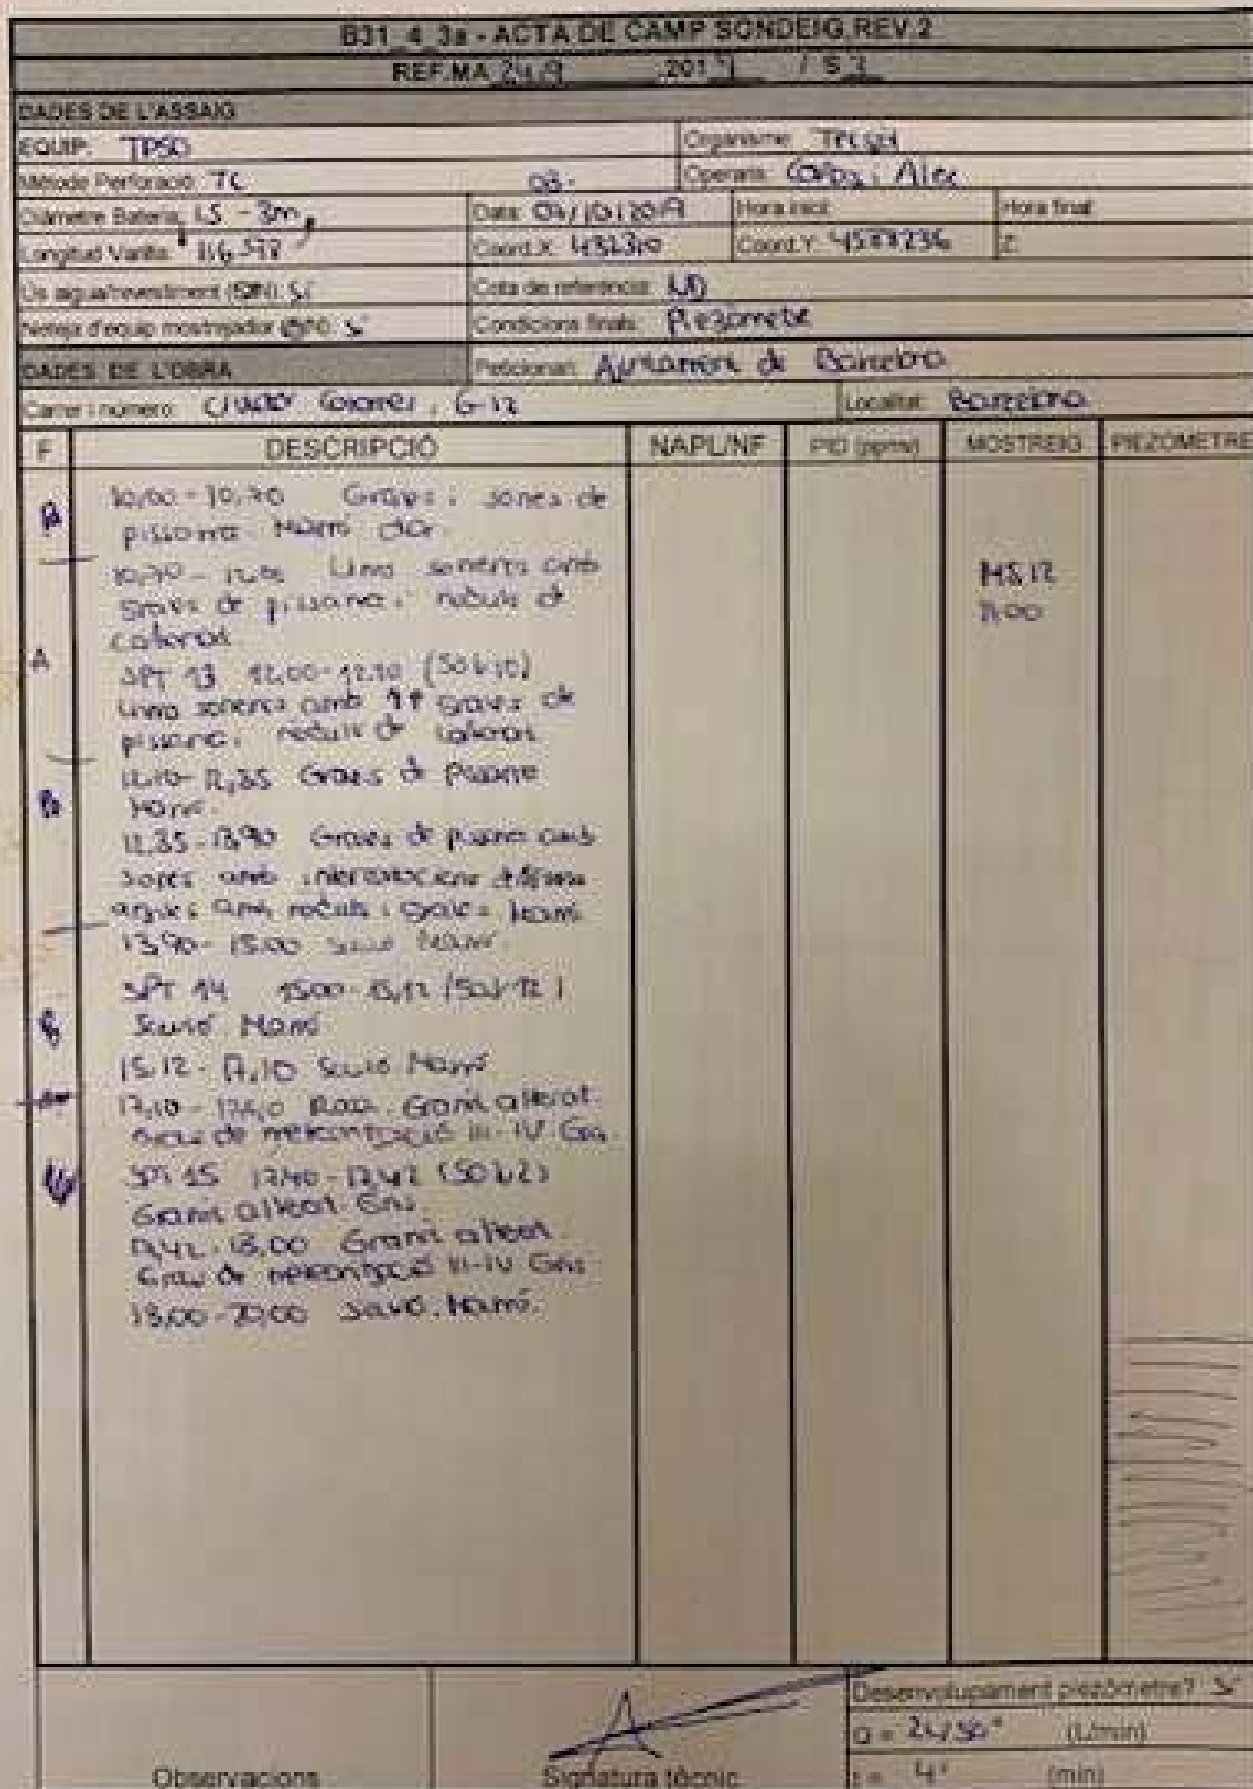 B31_4_3a - ACTA DE CAMP SONDEIG.REV.2
REF.MA 2019 / S3
DADES DE L'ASSAIG
EQUIP: TP50 Organisme
Mètode Perforació: TC Operaris: Carlos i Alex
Diàmetre Bateria: 1.5 - 3m Data: /10/2019 Hora inici: Hora final:
Longitud Varilla: Coord.X: 432310 Coord.Y: 4588236 Z:
Ús aigua/revestiment Si Cota de referència: ND
Neteja d'equip mostrejador Si Condicions finals: Piezòmetre
DADES DE L'OBRA Peticionari: Ajuntament de Barcelona
Carrer i número: , G-12 Localitat: Barcelona
F DESCRIPCIÓ NAPL/NF PID (ppmv) MOSTREIG PIEZÒMETRE
10,00 - 10,70 Graves i sorres de
pissarra. Marró clar.
10,70 - 12,00 Llims sorrencs amb MS 12
graves de pissarra i nòduls de 11,00
A
SPT 13 12,00-12,10 (50/10)
Llims sorrencs amb graves de
pissarra i nòduls de
12,10-12,35 Graves de pissarra
B Marró.
12,35-13,90 Graves de pissarra amb
sorres amb intercalacions
amb nòduls i graves Marró
13,90-15,00 Sauló Marró.
SPT 14 15,00-15,12 (50/12)
Sauló Marró
15,12-17,10 Sauló Marró
17,10-17,40 Roca. Granit alterat.
Grau de meteorització III-IV Gris.
SPT 15 17,40-17,42 (50/2)
Granit alterat. Gris.
17,42-18,00 Granit alterat.
Grau de meteorització III-IV Gris
18,00-20,00 Sauló. Marró.
Desenvolupament piezòmetre? Si
Q = (L/min)
Observacions Signatura tècnic t = 4' (min)